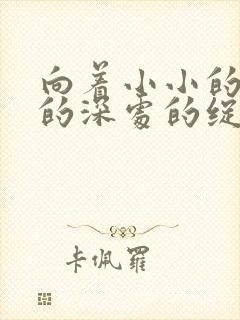 向着小小的
的深处的绽
卡佩罗